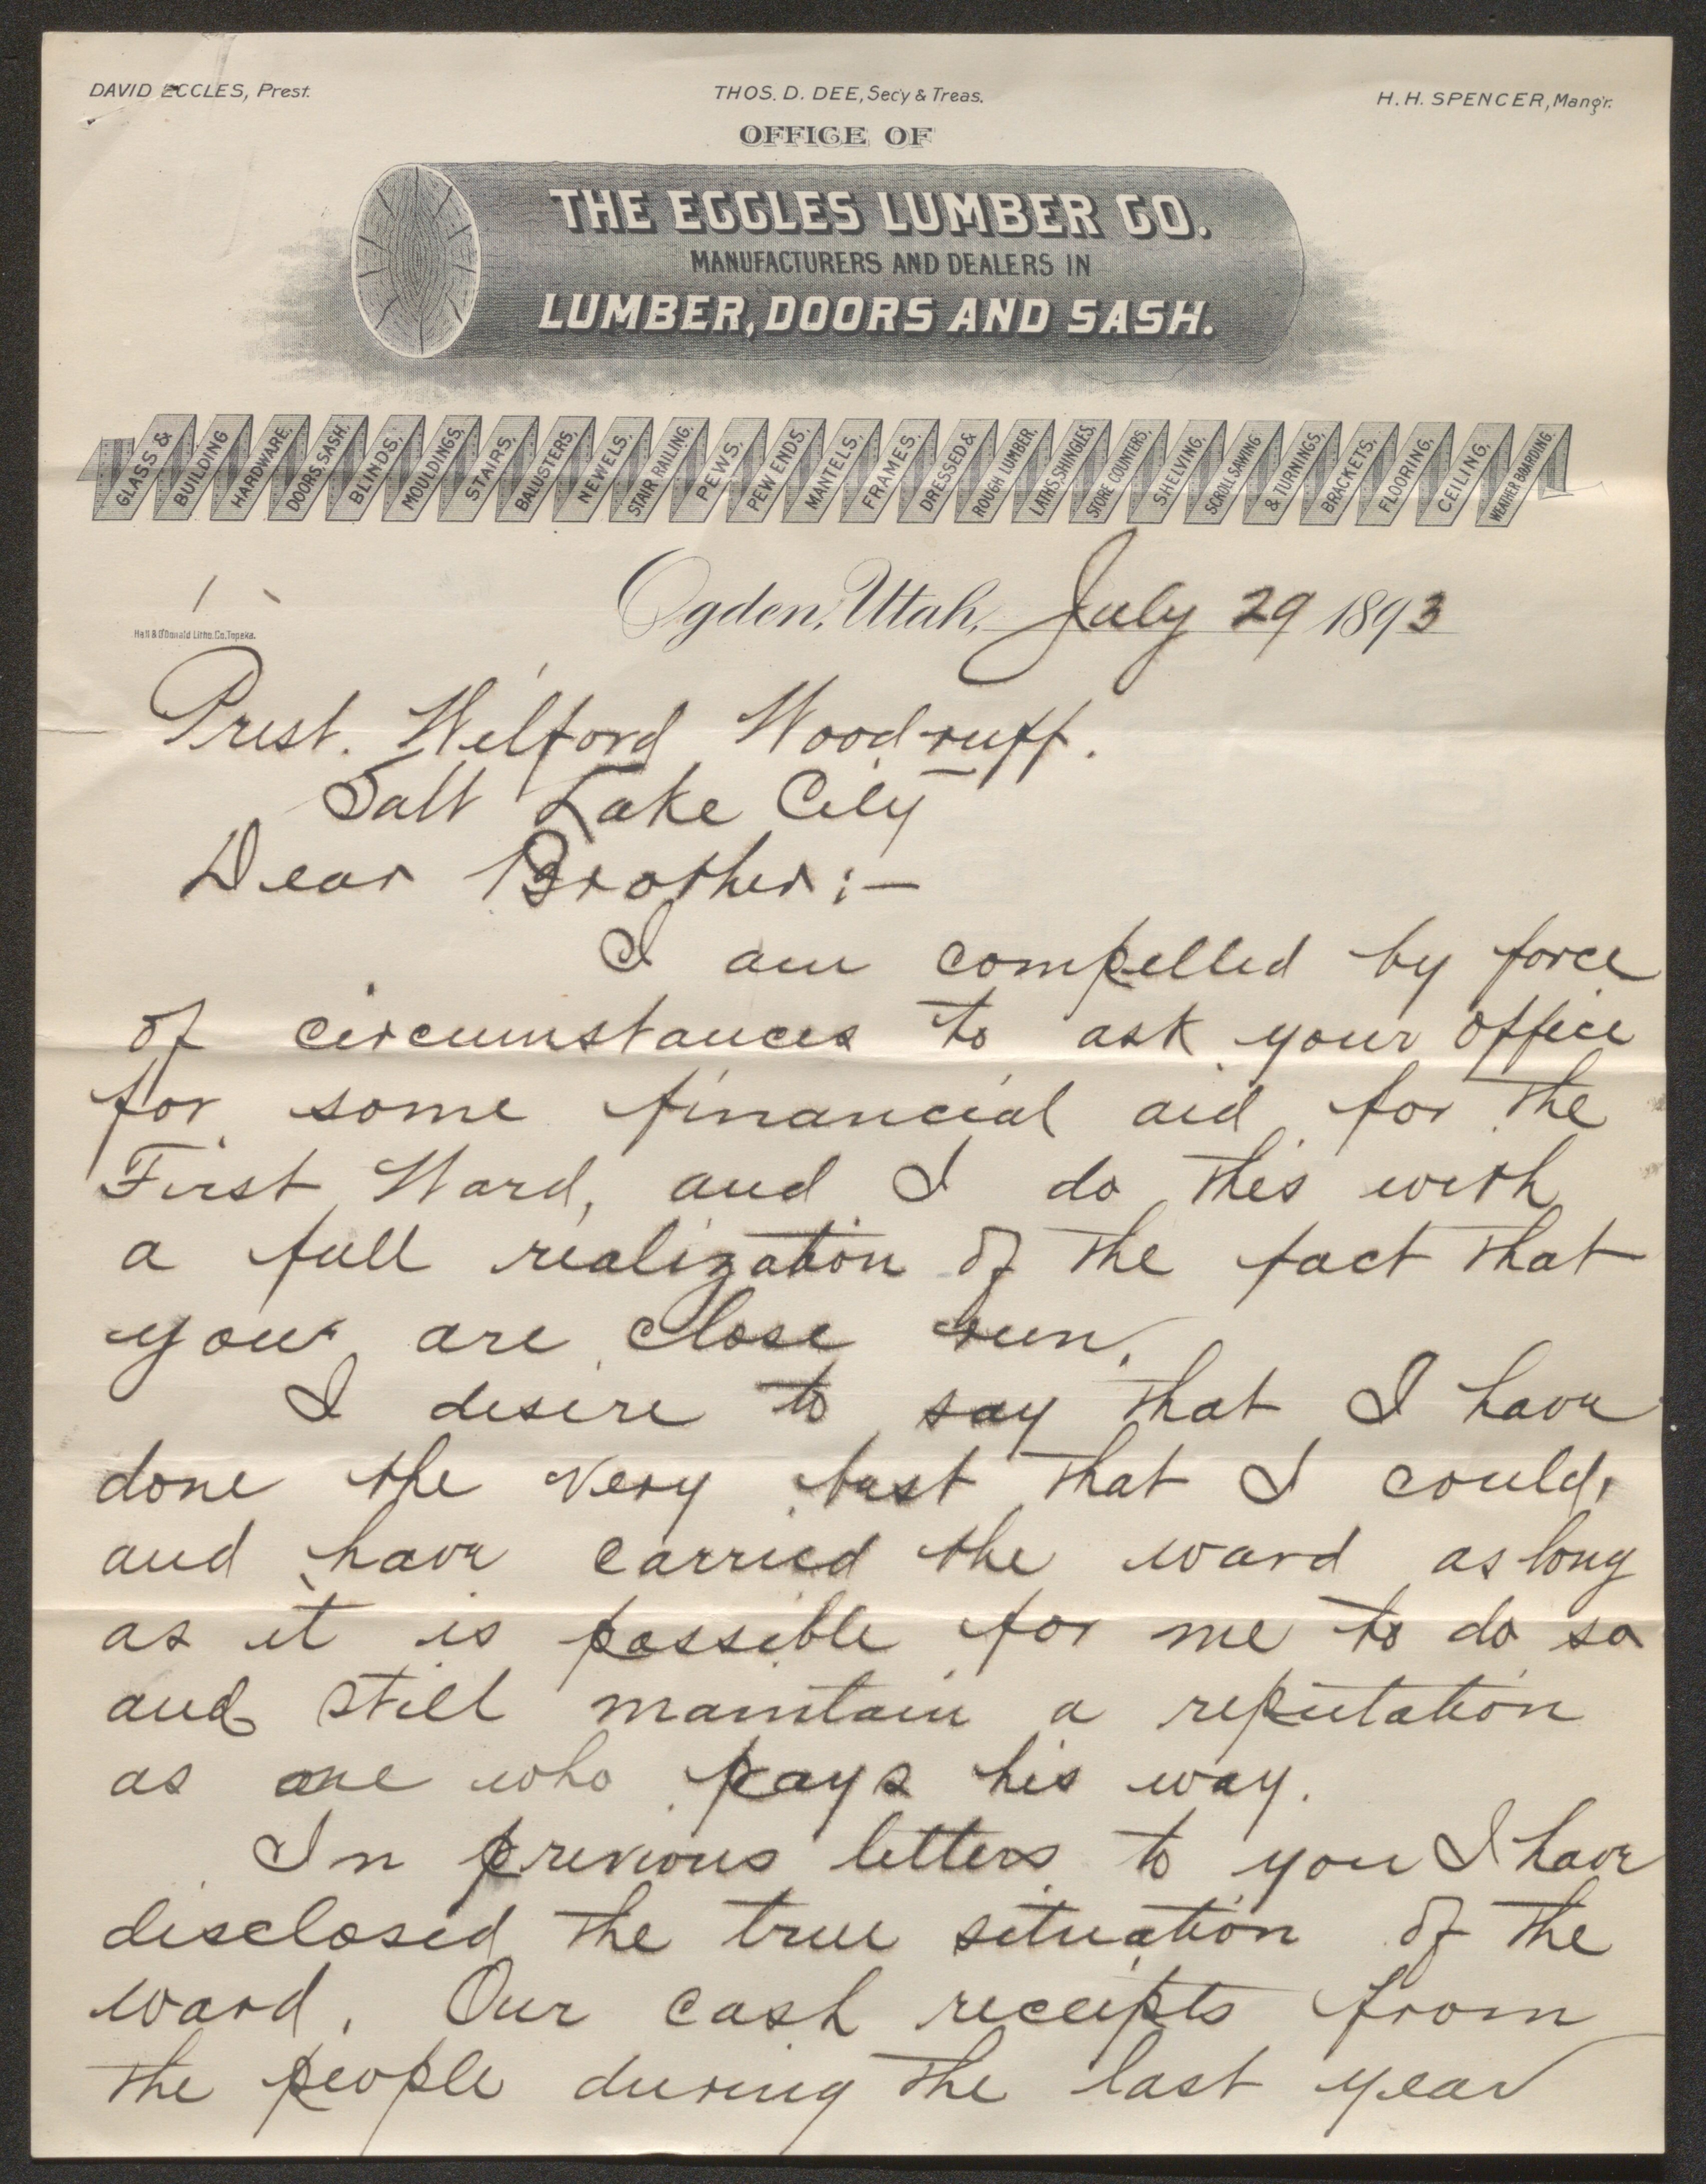 DAVID ECCLES, Prest.
THOS. D. DEE, Sec'y & Treas.
H. H. SPENCER, Mang'r.
OFFICE OF
THE ECCLES LUMBER CO.
MANUFACTURERS AND DEALERS IN
LUMBER, DOORS AND SASH.
GLASS & BUILDING HARDWARE. DOORS, SASH, BLINDS, MOULDINGS, STAIRS, BALUSTERS, NEWELS, STAIR RAILING, PEWS, PEW ENDS, MANTELS, FRAMES, DRESSED & ROUGH LUMBER, LATHS, SHINGLES, STORE COUNTERS, SHELVING, SCROLL SAWING & TURNINGS, BRACKETS, FLOORING, CEILING, WEATHER BOARDING.
Ogden, Utah, July 29 1893
Hall & O'Donald Litho. Co. Topeka.
Prest. Wilford Woodruff.
Salt Lake City
Dear Brother:—
I am compelled by force
of circumstances to ask your office
for some financial aid for the
First Ward, and I do this with
a full realization of the fact that
you are close run.
I desire to say that I have
done the very best that I could,
and have carried the ward as long
as it is possible for me to do so
and still maintain a reputation
as one who pays his way.
In previous letters to you I have
disclosed the true situation of the
ward. Our cash receipts from
the people during the last year